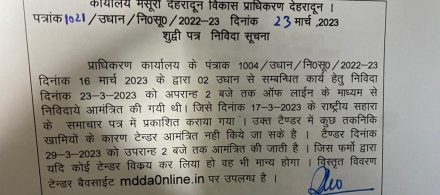 कार्यालय मसूरी देहरादून विकास प्राधिकरण देहरादून ।
पत्रांक 1021/उधान/नि0सू0/2022-23 दिनांक 23 मार्च ,2023
शुद्वी पत्र निविदा सूचना
प्राधिकरण कार्यालय के पंत्राक 1004/उधान/नि0सू0/2022-23
दिनांक 16 मार्च 2023 के द्वारा 02 उधान से सम्बन्धित कार्य हेतु निविदा
दिनांक 23-3-2023 को अपरान्ह 2 बजे तक ऑफ लाईन के माध्यम से
निविदाये आमंत्रित की गयी थी। जिसे दिनांक 17-3-2023 के राष्ट्रीय सहारा
के समाचार पत्र में प्रकाशित कराया गया । उक्त टैण्डर में कुछ तकनिकि
खामियों के कारण टेन्डर आमंत्रित नही किये जा सके है । टैण्डर दिनांक
29-3-2023 को उपरान्ह 2 बजे तक आमंत्रित की जाती है । जिस फर्मो द्वारा
यदि कोई टेन्डर विक्रय कर लिया हो वह भी मान्य होगा । विस्तृत विवरण
टेन्डर बैवसाईट mdda0nline.in पर उपलब्ध है ।